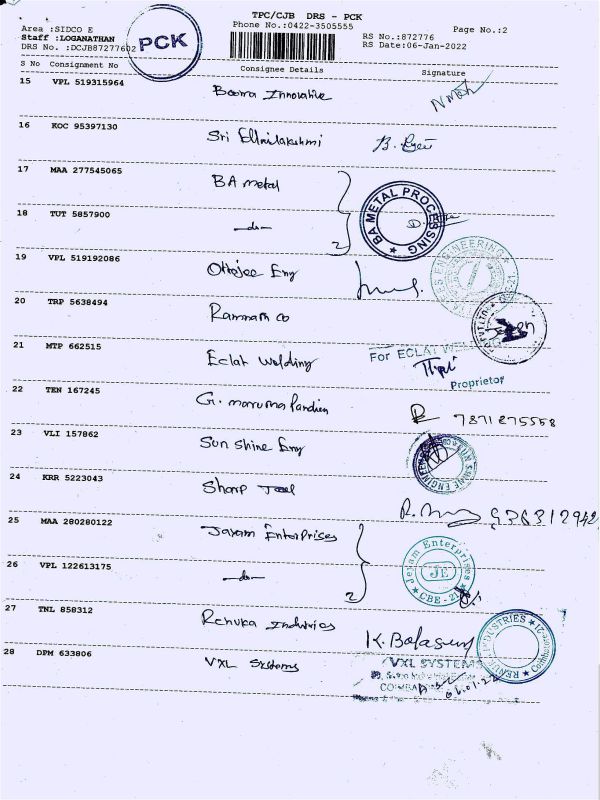 TPC/CJB DRS - PCK
Phone No.:0422-3505555
Page No.:2
Area :SIDCO E
Staff :LOGANATHAN
DRS No. :DCJB87277602
PCK
RS No.:872776
RS Date:06-Jan-2022
S No Consignment No Consignee Details Signature
15 VPL 519315964 Innovative
16 KOC 95397130 Sri
17 MAA 277545065 BA metal
BA METAL PROCESSING
18 TUT 5857900 -do- 2
19 VPL 519192086 Eng
ENGINEERING
20 TRP 5638494 Ramnath Co
21 MTP 662515 Eclat Welding
For ECLAT
Proprietor
22 TEN 167245 G. 7871275558
23 VLI 157862 Sun Shine Eng
24 KRR 5223043 Sharp Tool
25 MAA 280280122 Jayam Enterprises
Jeyam Enterprises
JE
CBE - 21
26 VPL 122613175 -do- 2
27 TNL 858312 Renuka Industries
INDUSTRIES
28 DPM 633806 VXL Systems
VXL SYSTEMS
06.01.22